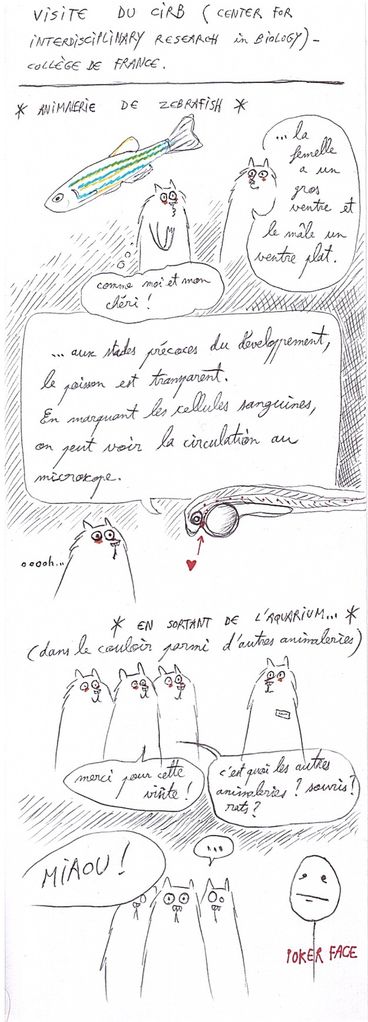 VISITE DU CIRB (CENTER FOR
INTERDISCIPLINARY RESEARCH in BIOLOGY)-
COLLÈGE DE FRANCE.
* ANIMALERIE DE ZEBRAFISH *
... la
femelle
a un
gros
ventre et
le mâle un
ventre plat.
comme moi et mon
chéri !
... aux stades précoces du développement,
le poisson est transparent.
En marquant les cellules sanguines,
on peut voir la circulation au
microscope.
ooooh...
* EN SORTANT DE L'AQUARIUM... *
(dans le couloir parmi d'autres animaleries)
merci pour cette
visite !
c'est quoi les autres
animaleries ? souris ?
rats ?
MIAOU !
...
POKER FACE